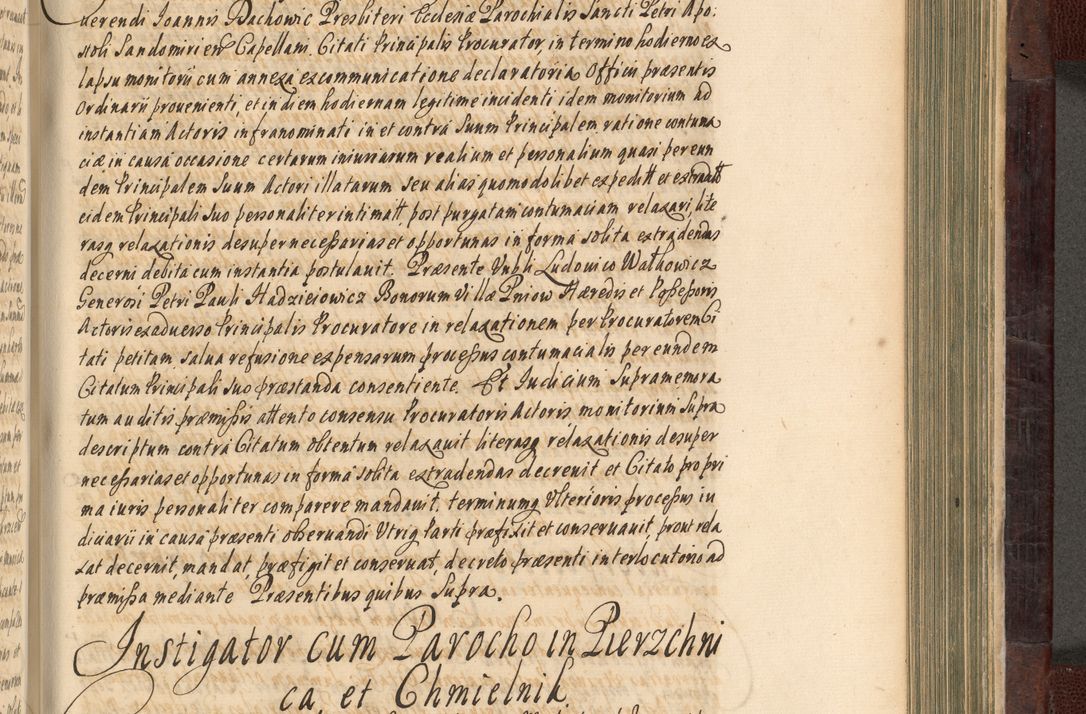 uerendi Joannis Bachowic Presbiteri Ecclesiæ Parochialis Sancti Petri Apo:
stoli Sandomirien Capellani Citati Principalis Procurator, in termino hodierno ex
lapsu monitorii cum annexa excommunicatione declaratoria Officii præsentis
Ordinarii prouenienti, et in diem hodiernam legitime incidenti idem monitorium ad
instantiam Actoris infranominati in et contra Suum Principalem ratione contuma
ciæ in causa occasione certarum iniuriarum realium et personalium quasi per eun
dem Principalem Suum Actori illatarum seu alias quomodolibet expeditt et extractt
eidem Principali Suo personaliter intimatt, post purgatam contumaciam relaxari, lite
rasq relaxationis desuper necessarias et opportunas in forma solita extradendas
decerni debita cum instantia postulauit. Præsente Nobli Ludouico Walkowicz
Generosi Petri Pauli Hadzieiowicz Bonorum Villæ Pniow Hæredis et Possessoris
Actoris ex aduerso Principalis Procuratore in relaxationem per Procuratorem Ci
tati petitam salua refusione expensarum processus contumacialis per eundem
Citatum Principali Suo præstanda consentiente. Et Judicium Supramemora
tum auditis præmissis attento consensu Procuratoris Actoris monitorium Supra
descriptum contra Citatum obtentum relaxauit literasq relaxationis desuper
necessarias et opportunas in forma solita extradendas decreuit et Citato pro pri
ma iuris personaliter comparere mandauit, terminumq Ulterioris processus iu
diciarii in causa præsenti obseruandi Utriq Parti præfixit et conseruauit, prout rela
xat decernit, mandat, præfigit et conseruat, decreto præsenti interlocutorio ad
præmissa mediante Præsentibus quibus Supra.
Instigator cum Parocho in Pierzchni
ca et Chmielnik